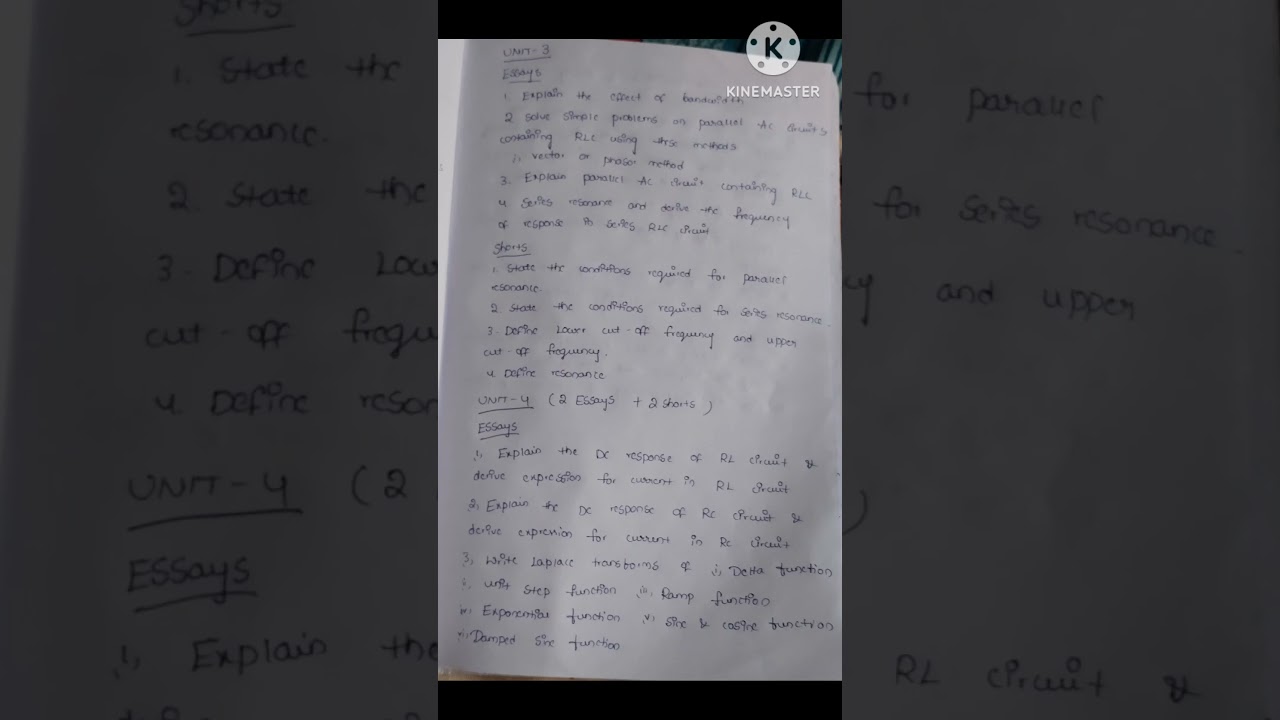 UNIT-3
Essays
1. Explain the effect of bandwidth
2 solve simple problems on parallel AC circuits
containing RLC using these methods
i) vector or phasor method
3. Explain parallel AC circuit containing RLC
4 Series resonance and derive the frequency
of response in series RLC circuit
Shorts
1. State the conditions required for parallel
resonance.
2. State the conditions required for series resonance.
3. Define Lower cut-off frequency and upper
cut-off frequency.
4. Define resonance
UNIT-4 (2 Essays + 2 shorts)
ESSays
1, Explain the DC response of RL circuit &
derive expression for current in RL circuit
2, Explain the DC response of RC circuit &
derive expression for current in RC circuit
3, Write Laplace transforms of i, Delta function
ii. Unit Step function iii, Ramp function
iv, Exponential function v) Sine & cosine function
vi, Damped Sine function
KINEMASTER